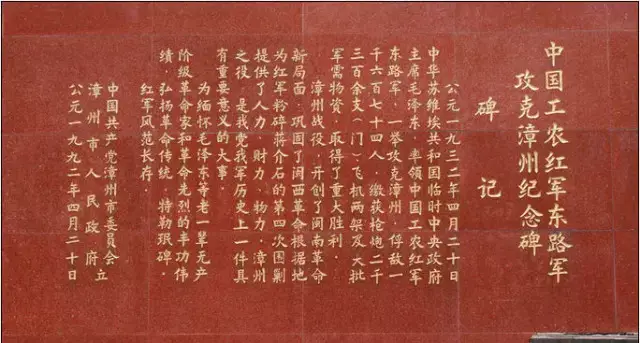 中国工农红军东路军
攻克漳州纪念碑
碑记
公元一九三二年四月二十日
中华苏维埃共和国临时中央政府
主席毛泽东，率领中国工农红军
东路军，一举攻克漳州，俘敌一
千六百七十四人，缴获枪炮二千
三百余支（门），飞机两架及大批
军需物资，取得了重大胜利。
漳州战役，开创了闽南革命
新局面，巩固了闽西革命根据地
为红军粉碎蒋介石的第四次围剿
提供了人力，财力，物力，漳州
之役，是我党我军历史上一件具
有重要意义的大事。
为缅怀毛泽东等老一辈无产
阶级革命家和革命先烈的丰功伟
绩，弘扬革命传统，特勒珉碑，
红军风范长存。
中国共产党漳州市委员会
漳州市人民政府
立
公元一九九二年四月二十日